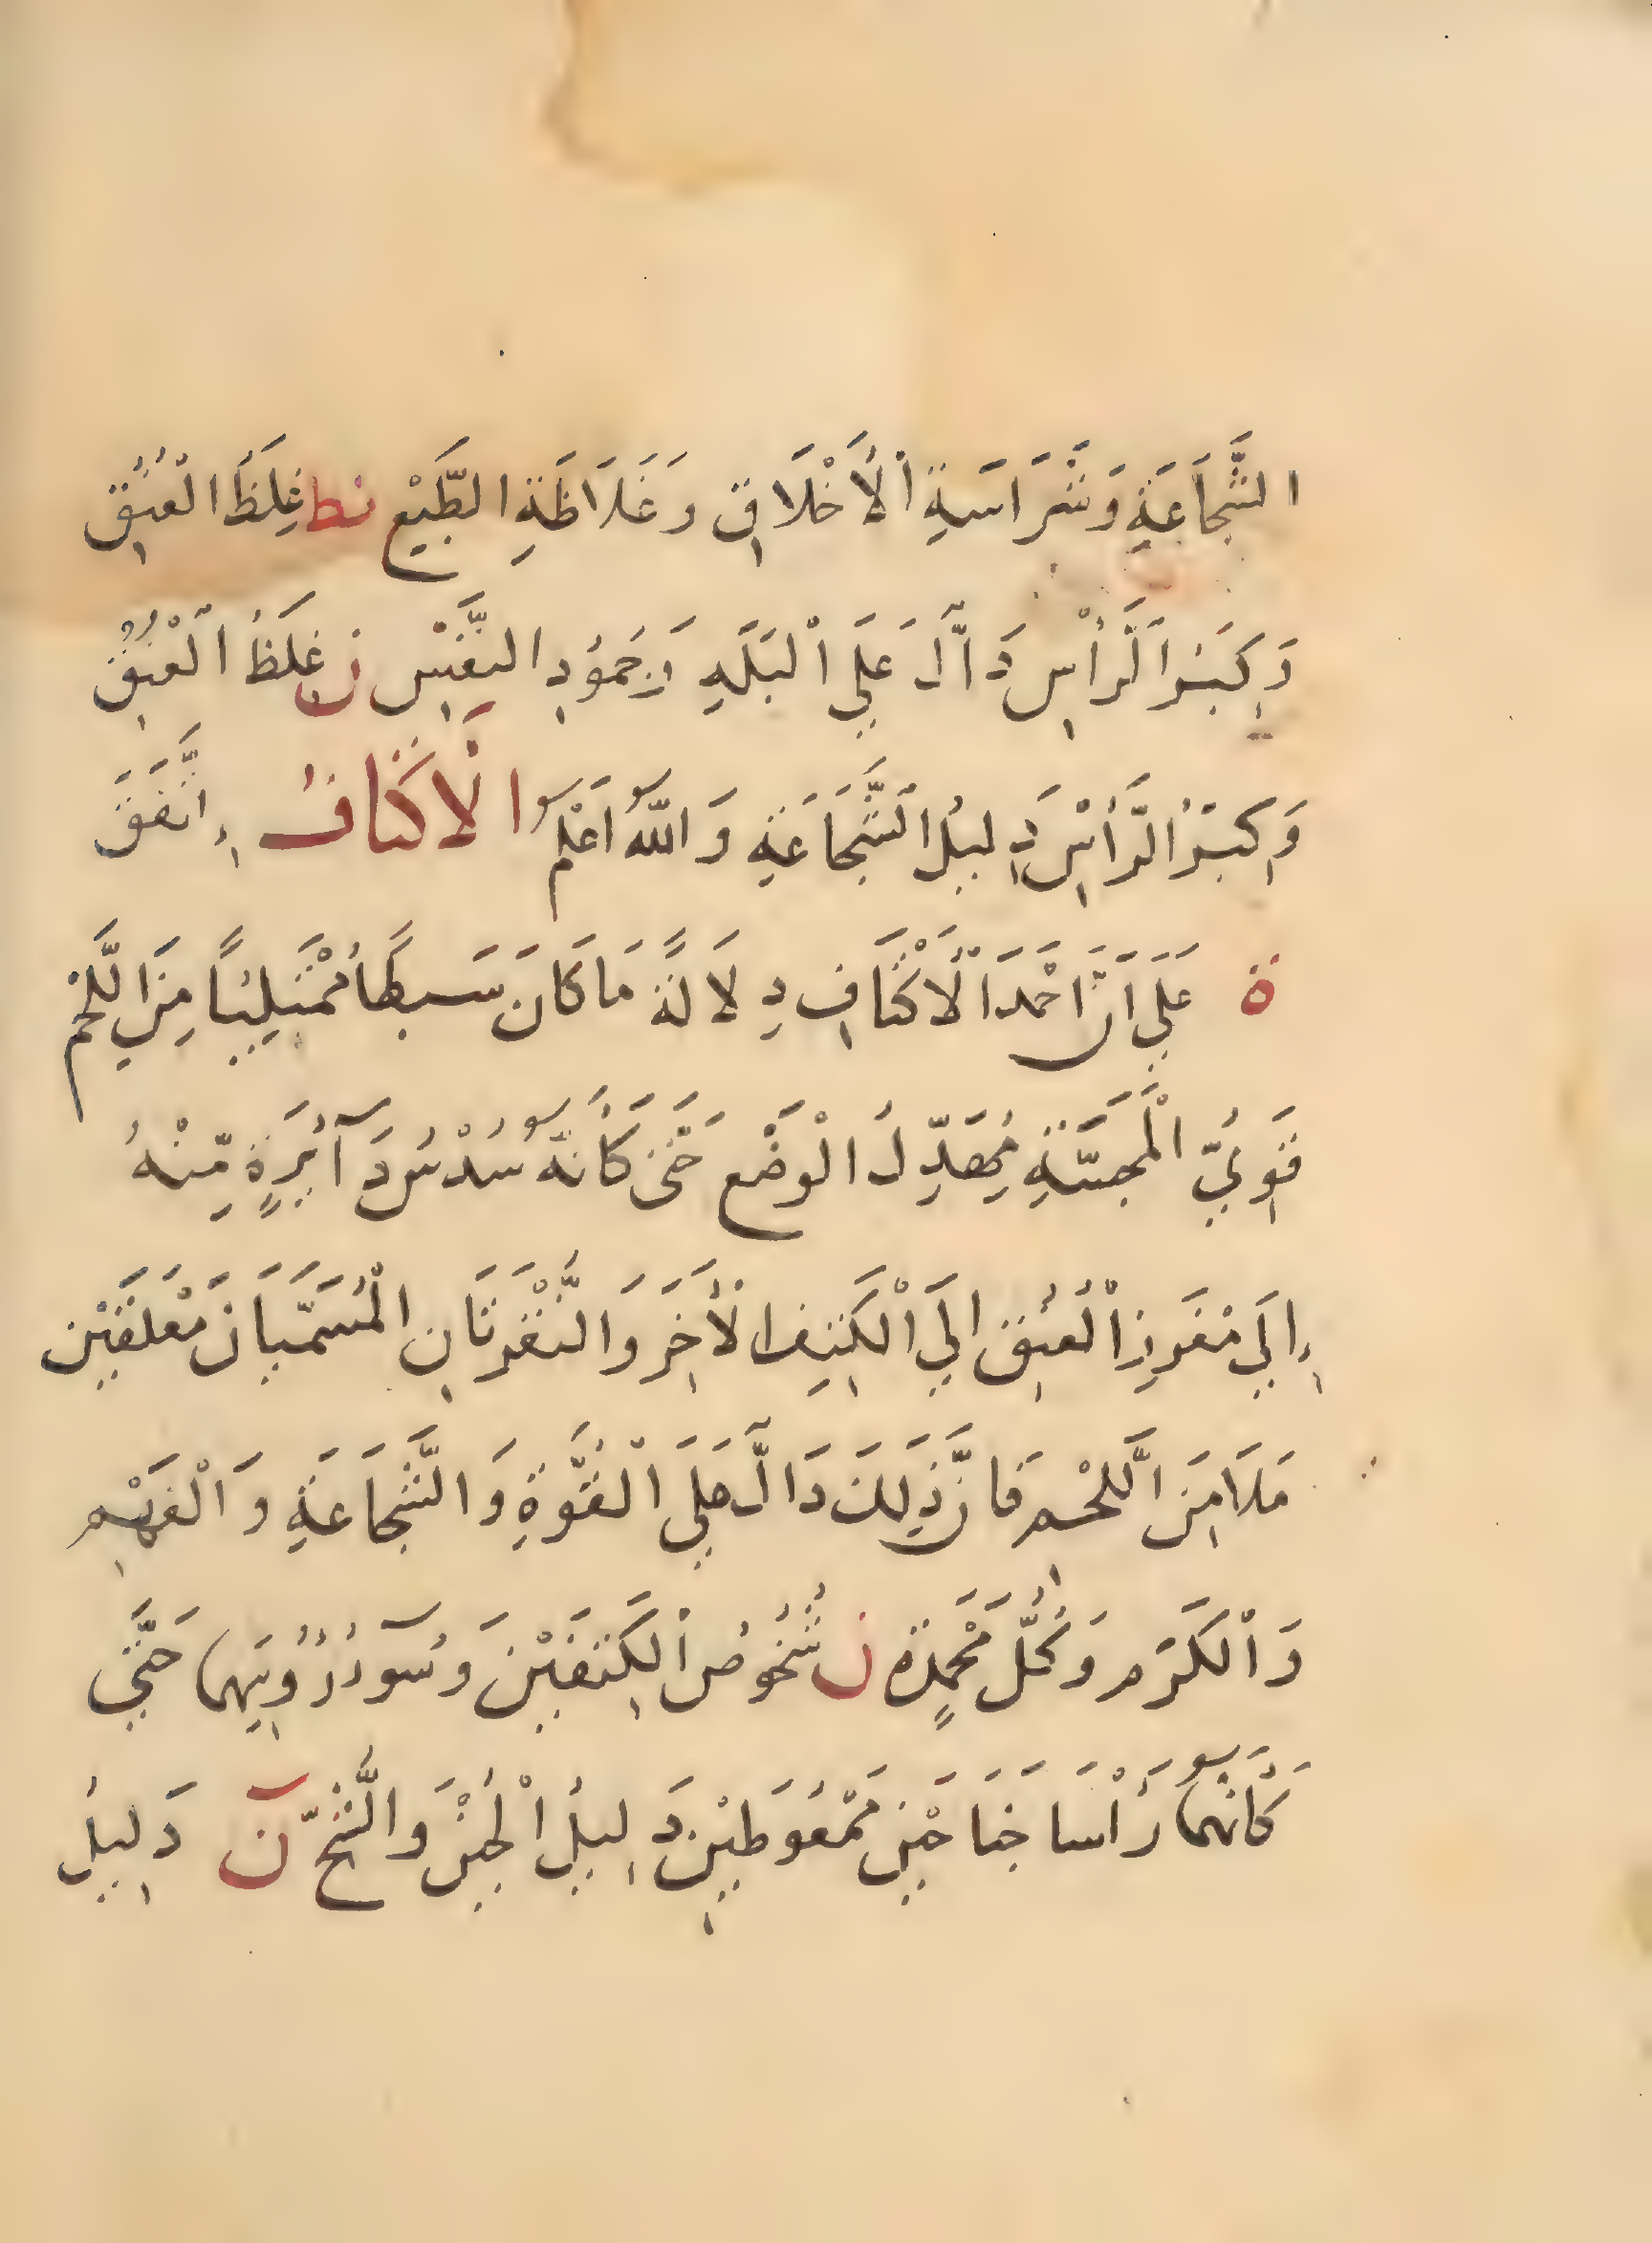 الشَّجَاعَةِ وَشَرَاسَةِ الْأَخْلَاقِ وَغَلَاظَةِ الطَّبْعِ نط غِلَظُ الْعُنُقِ
وَكِبَرُ الرَّأْسِ دَالٌّ عَلَي الْبَلَهِ وَجَمُودِ النَّفْسِ ن غِلَظُ الْعُنُقِ
وَكِبَرُ الرَّأْسِ دَلِيلُ الشَّجَاعَةِ وَاللهُ اَعْلَم الْاَكْتَافُ اِتَّفَقَ
ة عَلَي اَنَّ اَحْمَدَ الْاَكْتَافِ دِلَالَةً مَا كَانَ سَبطًا مُمْتَلِيًا مِنَ اللَّحْمِ
قَوِيَّ الْمَجَسَّةِ مُعَدِّلَ الْوَضْعِ حَتَّى كَأَنَّهُ سُدْسُ دَآئِرَةٍ مِّنْهُ
اِلَي مَغْرَزِ الْعُنُقِ الَي الْكَتِفِ الْأَخَرَ وَالنَّقْرَتَانِ الْمُسَمَّيَانَ مَعْلَفَيْنِ
مَلَا مِنَ اللَّحْمِ فَانَّ ذَلِكَ دَالٌّ عَلَي الْقُوَّةِ وَالشَّجَاعَةِ وَالْفَهْمِ
وَالْكَرَمِ وَكُلِّ مَحْمِدَةٍ ن شُخُوصُ الْكَتِفَيْنِ وَسُوءُ رُؤُوسِهِمَا حَتَّي
كَأَنَّهُمَا رَأْسَا جَنَاحَيْنِ مَمْعُوطَيْنِ دَلِيلُ الْجُبْنِ وَالشُّحِّ ن دَلِيلُ